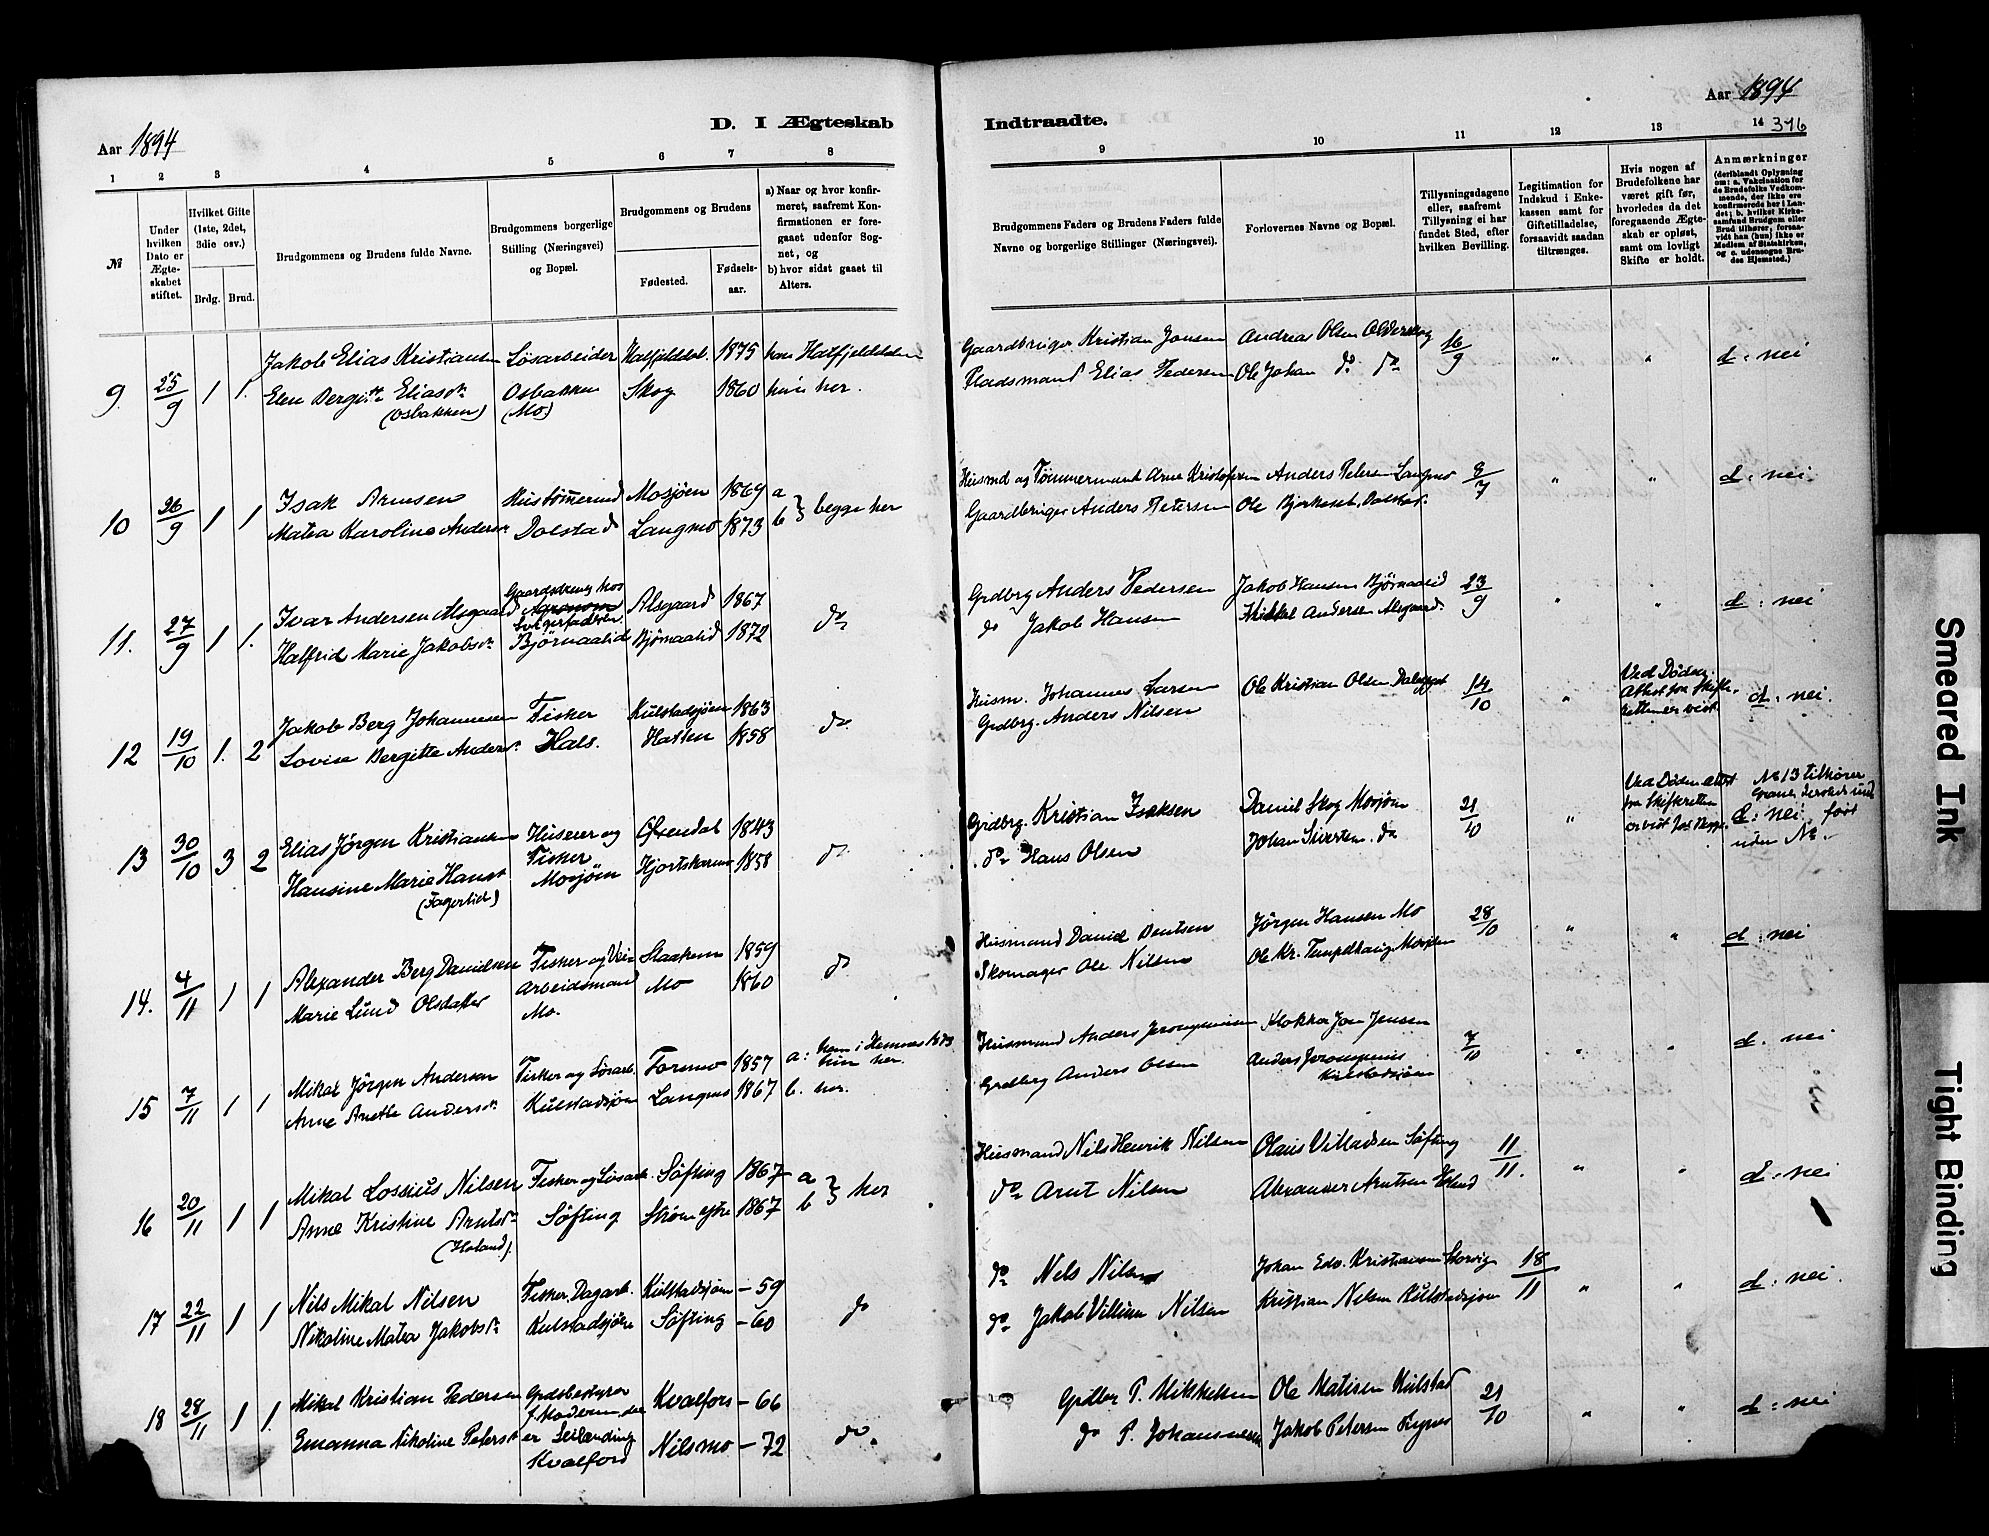 Aar 1894
D. I Ægteskab
Indtraadte.
Aar 1894
1 2 3 4 5 6 7 8
9 10 11 12 13 14 346
№
Under hvilken Dato er Ægteskabet stiftet.
Hvilket Gifte (1ste, 2det, 3die osv.)
Brdg. Brud.
Brudgommens og Brudens fulde Navne.
Brudgommens borgerlige Stilling (Næringsvei) og Bopæl.
Brudgommens og Brudens
Fødested.
Fødselsaar.
a) Naar og hvor konfirmeret, saafremt Konfirmationen er foregaaet udenfor Sognet, og
b) hvor sidst gaaet til Alters.
Brudgommens Faders og Brudens Faders fulde Navne og borgerlige Stillinger (Næringsvei).
Forlovernes Navne og Bopæl.
Tillysningsdagene eller, saafremt Tillysning ei har fundet Sted, efter hvilken Bevilling.
Legitimation for Indskud i Enkekassen samt for Giftetilladelse, forsaavidt saadan tiltrænges.
Hvis nogen af Brudefolkene har været gift før, hvorledes da det foregaaende Ægteskab er opløst, samt om lovligt Skifte er holdt.
Anmærkninger
(deriblandt Oplysning om: a. Vakcination for de Brudefolks Vedkommende, der ikke ere konfirmerede her i Landet; b. hvilket Kirkesamfund Brudgom eller Brud tilhører, forsaavidt han (hun) ikke er Medlem af Statskirken, og c. udensogns Brudes Hjemsted.)
9. 25/9 1 1. Jakob Elias Kristiansen Løsarbeider Hatfjelddal. 1875 han Hatfjelddalen
Elen Bergitte Eliasdr Osbakken Skog 1860 hun her.
(Osbakken) (Mo)
Gaardbruger Kristian Jonsen Andreas Olsen Olderskog 16/9 " " d: nei
Pladsmand Elias Pedersen Ole Johan do do
10 26/9 1 1 Isak Arnesen Hustømmermd Mosjøen 1869 a
Matea Karoline Andersdr Dolstad Langmo 1873 b } begge her
Husmd og Tømmermand Arne Kristofersen Anders Petersen Langmo 8/7 " " d: nei
Gaardbruger Anders Petersen Ole Bjorkeset, Dolstad.
11. 27/9 1 1. Ivar Andersen Alsgaard Gaardsdreng hos Alsgaard 1867 do
Agronom
Svigerfaderen
Halfrid Marie Jakobsdr Bjørnaalid Bjørnaalid 1872
Grdbrg Anders Pedersen Jakob Hansen Bjørnaalid 23/9 " " d: nei
do Jakob Hansen Mikkel Andersen Alsgaard.
12 19/10 1. 2 Jakob Berg Johannesen Fisker Kulstadsjøen 1863 do
Lovise Bergitte Andersdr Hals. Hatten 1858
Husm. Johannes Larsen Ole Kristian Olsen 14/10 " Ved Døden. d: nei.
Grdbrg. Anders Nilsen Attest fra Skifteretten er vist
13 30/10 3 2 Elias Jørgen Kristiansen Huseier og Øxendal 1843 do
Hansine Marie Hansdr Fisker Hjortskarmo 1858
(Fagerlid) Mosjøen
Grdbrg. Kristian Isaksen Daniel Skog Mosjøen 21/10 " Ved Døden attest № 13 tilhører
do Hans Olsen Johan Sivertsen do fra Skifteretten d: nei. ført
er vist for Begge uden №.
14. 4/11 1 1 Alexander Berg Danielsen Fisker og Vei- 1859 do
Marie Lund Olsdatter arbeidsmand Mo 1860
Mo.
Husmand Daniel Bentsen Jørgen Hansen Mo 28/10 " " d: nei
Skomager Ole Nilsen Ole Kr. Tempelhaug Mosjøen
15 7/11 1 1 Mikal Jørgen Andersen Fisker og Løsarb. Formo 1857 a: ham i Hemnes 1873
hun her.
Anne Anette Andersdr Kulstadsjøen Langnes 1867 b. her.
Husmand Anders Jeronymusen Klokker Jon Jensen 7/10 " " d: nei
Grdbrg Anders Olsen Anders Jeronymus
Kulstadsjøen
16 20/11 1 1 Mikal Lossius Nilsen Fisker og Løsarb. Søfting 1867 a
Anne Kristine Arntsdr Søfting Strøm ytre 1867 b } her
(Holand).
Husmand Nils Henrik Nilsen Olaus Villadsen Søfting 11/11. " " d: nei
do Arnt Nilsen Alexander Arntsen
17 22/11 1 1 Nils Mikal Nilsen Fisker, Dagarb. Kulstadsjøen – 59 do
Nikoline Matea Jakobsdr Kulstadsjøen Søfting – 60
do Nels Nilsen Johan Edv. Kristiansen Storvig 18/11 " " d: nei.
do Jakob Villum Nilsen Kristian Nilsen Kulstadsjøen
18 28/11 1 1. Mikal Kristian Pedersen Grdsbestyrer Kvalfors – 66 do.
f. Moderen, der
Emanna Nikoline Petersdr er Leilænding Nilsmo – 72
Kvalford
Grdbr P. Mikkelsen Ole Matisen Kulstad 21/10 " " d: nei
do P. Johannesen Jakob Petersen
Smeared Ink
Tight Binding